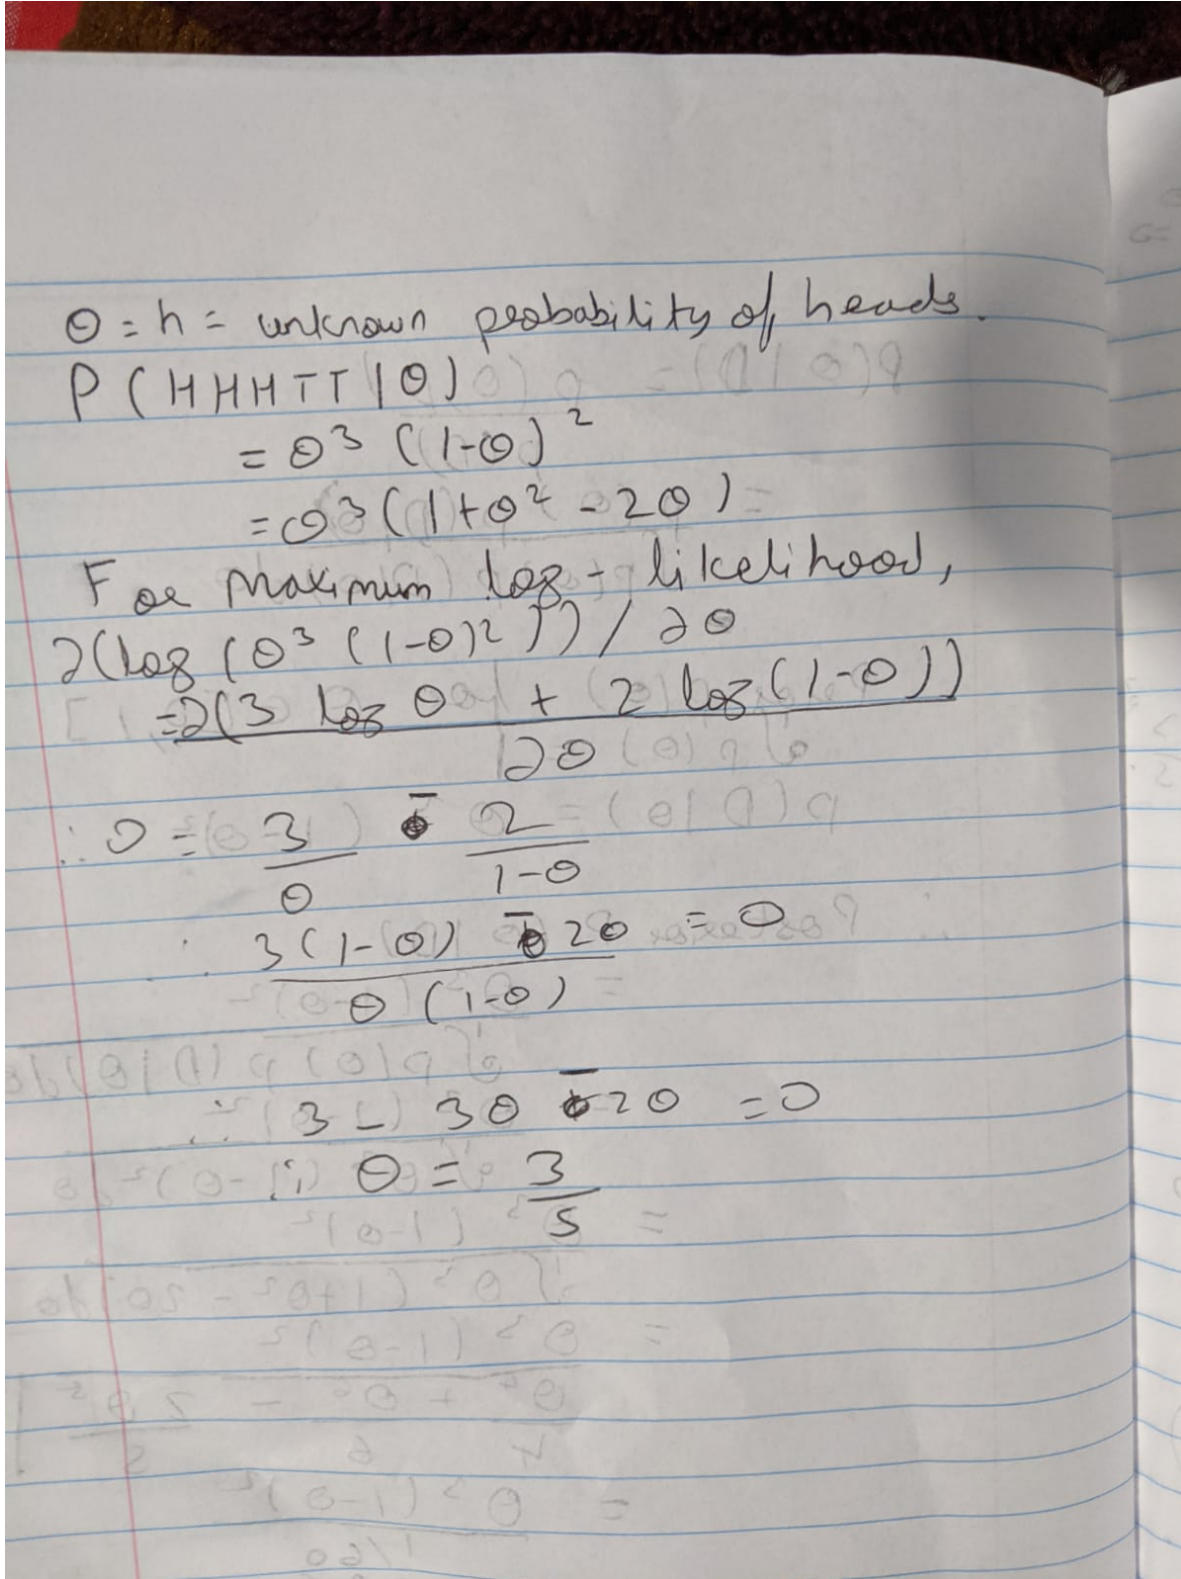 θ = h = unknown probability of heads.
P(HHHTT|θ)
= θ³ (1-θ)²
= θ³ (1+θ² - 2θ)
For maximum log-likelihood,
∂(log(θ³ (1-θ)²))/∂θ
= ∂(3 log θ + 2 log(1-θ))
∂θ
∴ 0 = 3/θ - 2/(1-θ)
∴ (3(1-θ) - 2θ)/(θ(1-θ)) = 0
3 - 3θ - 2θ = 0
∴ θ = 3/5